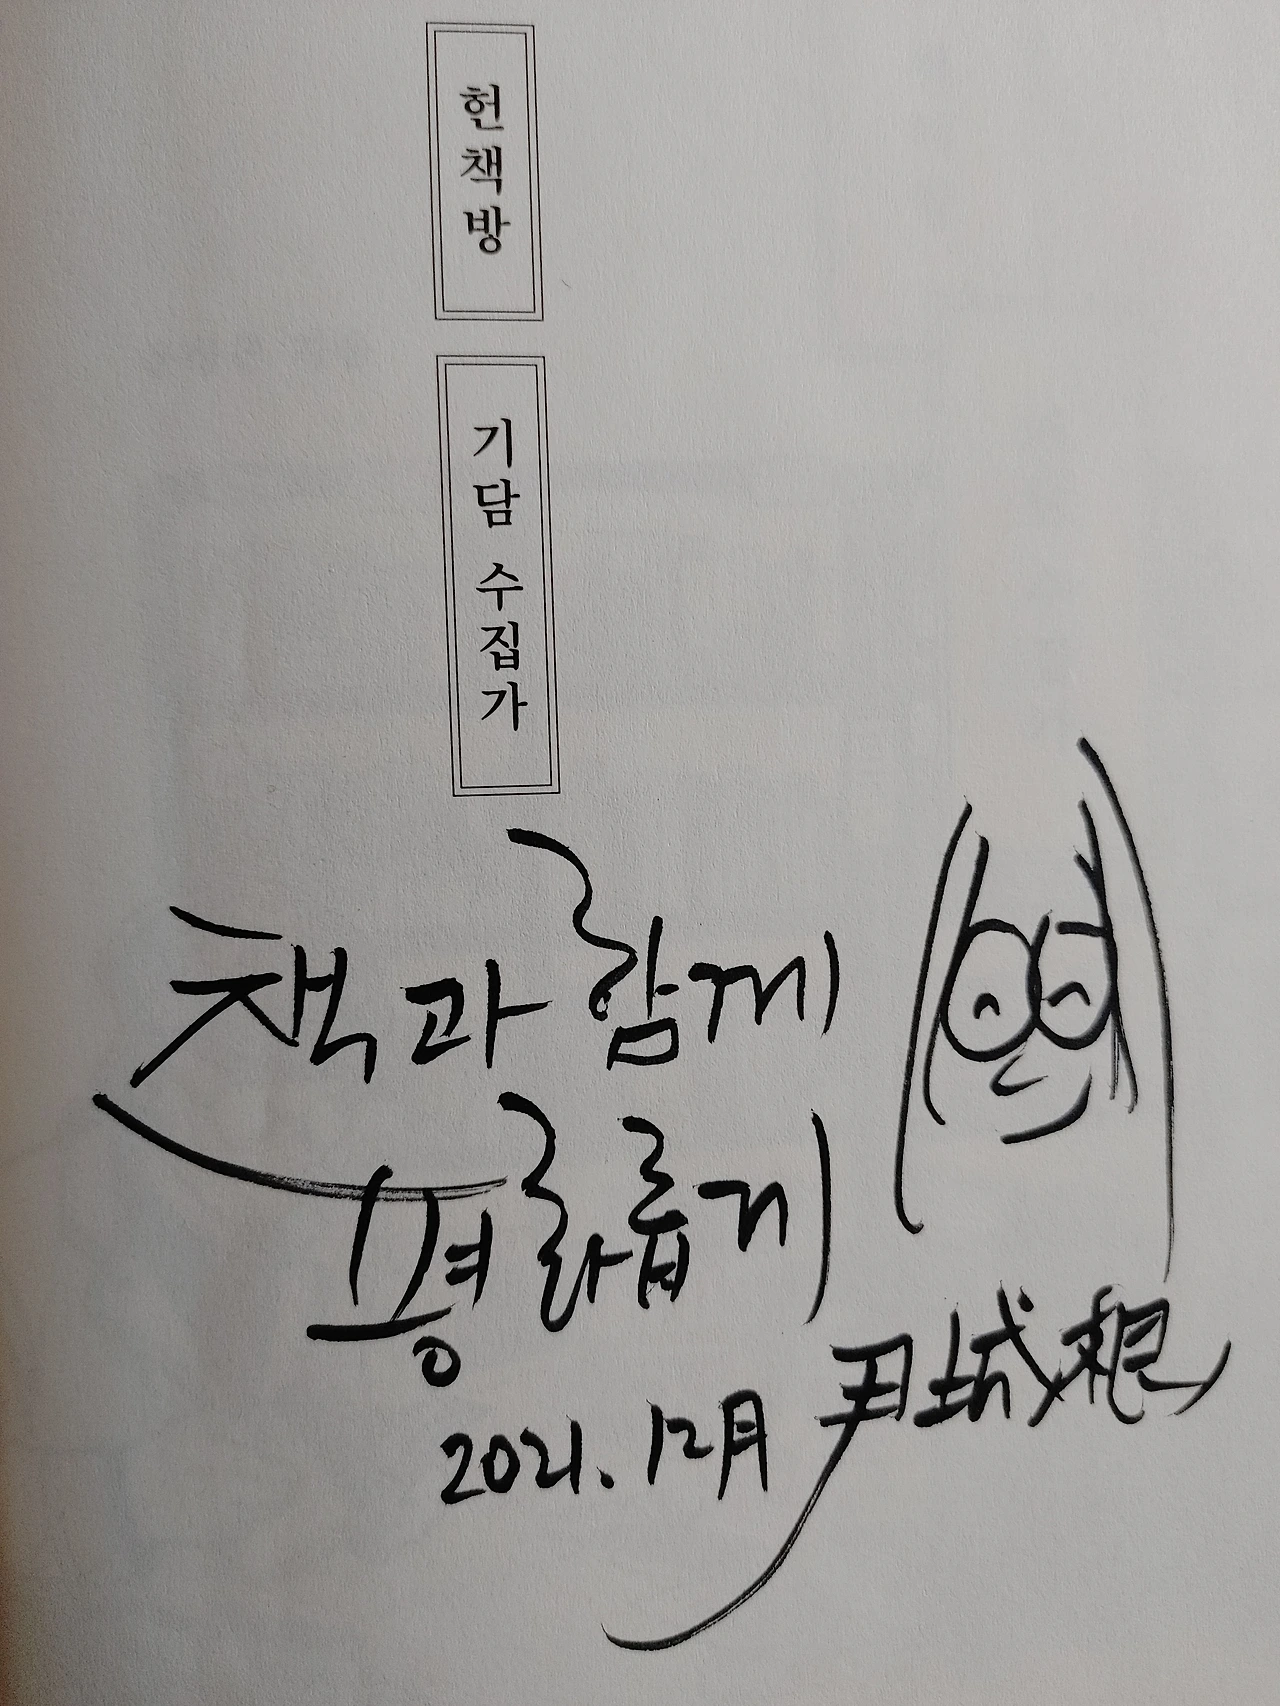 헌책방
기담 수집가
책과 함께
평화롭게
2021. 12月
尹城想